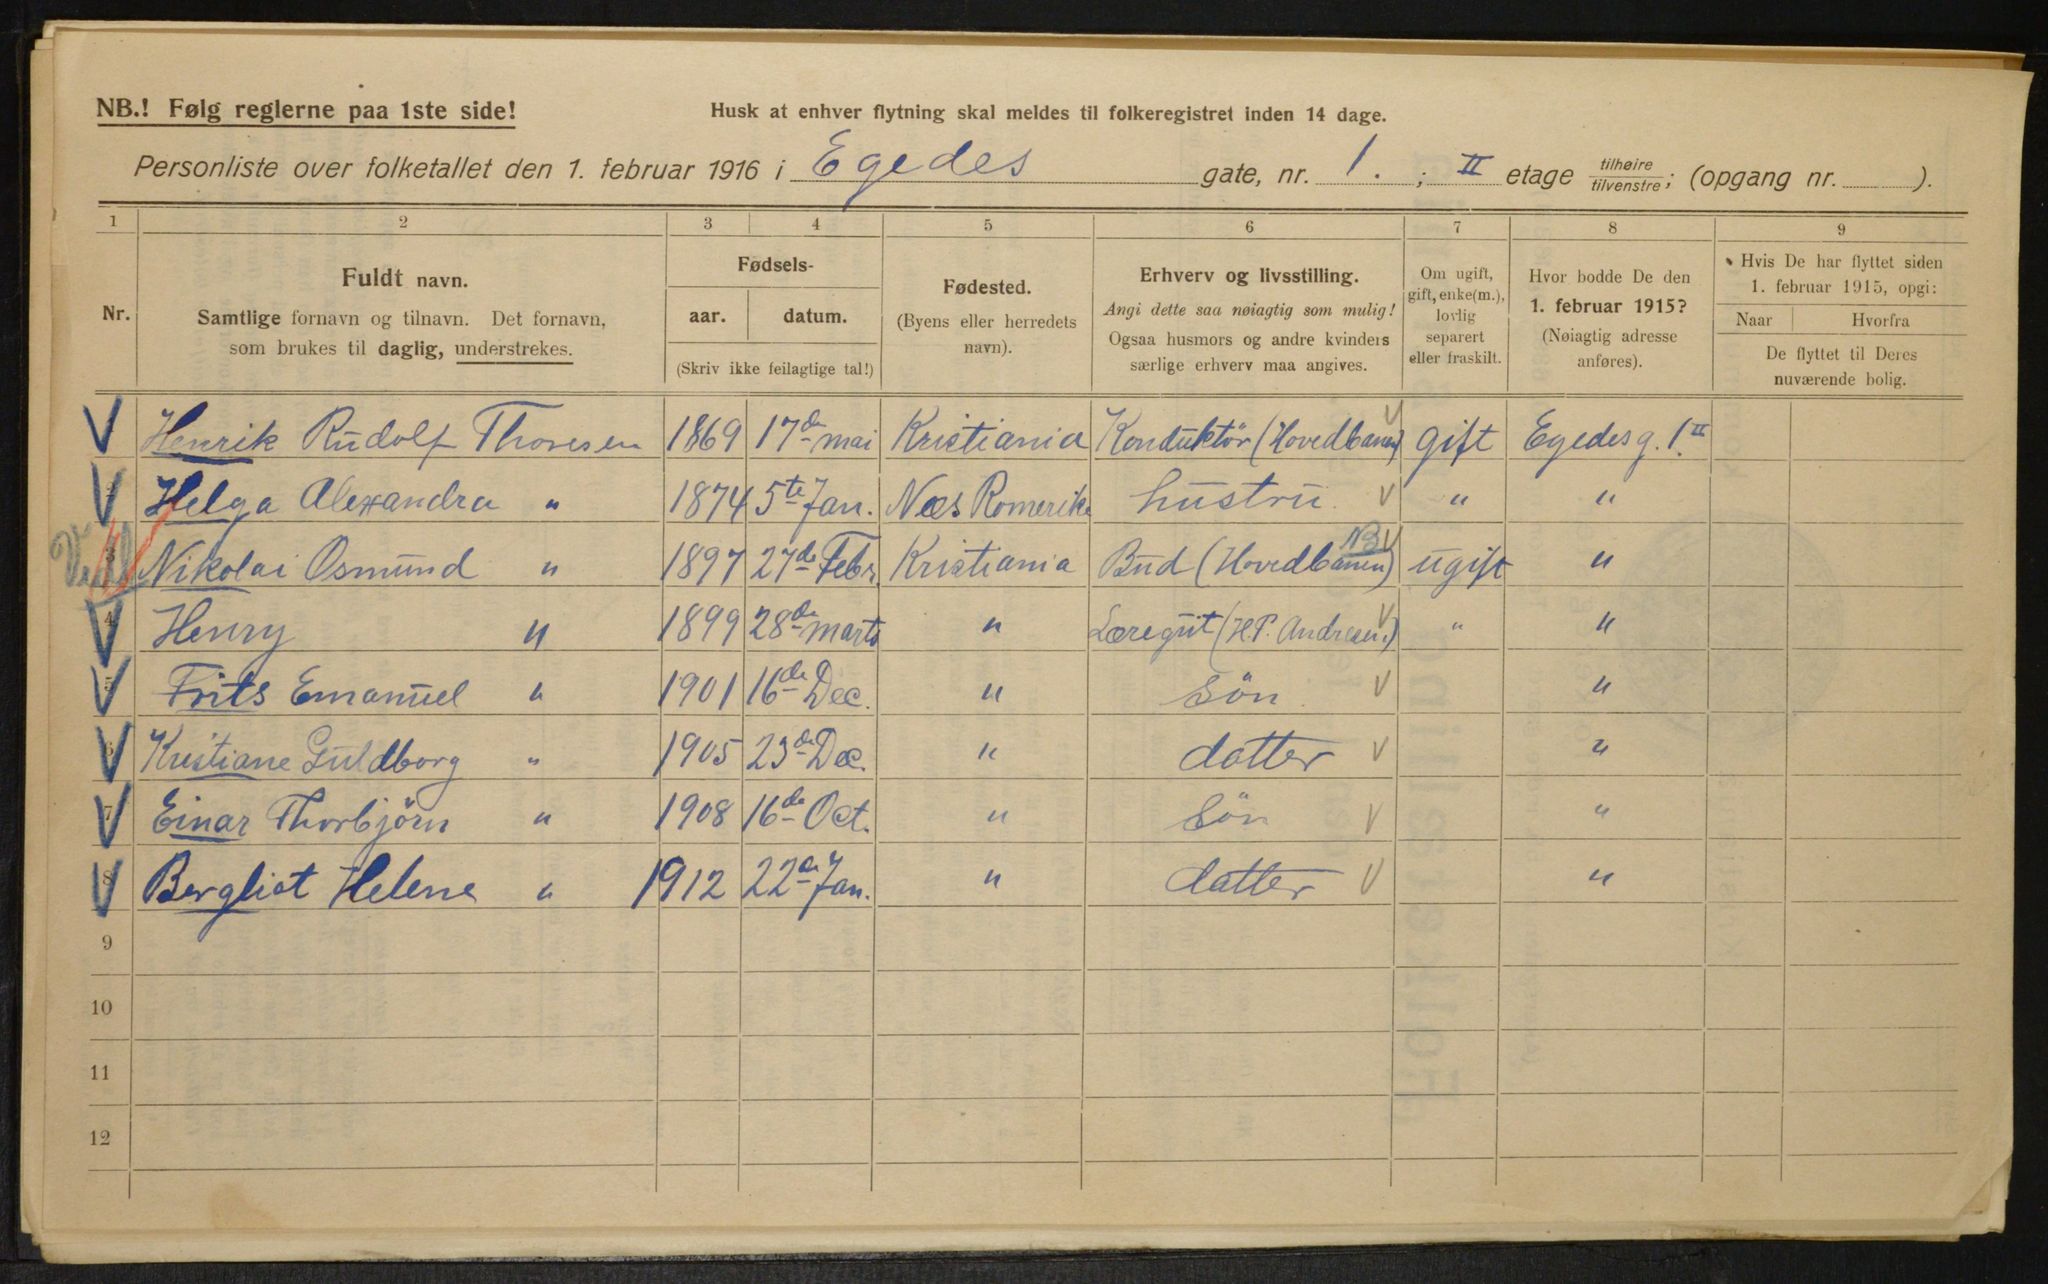 NB.! Følg reglerne paa 1ste side!
Husk at enhver flytning skal meldes til folkeregistret inden 14 dage.
Personliste over folketallet den 1. februar 1916 i Egedes gate, nr. 1. ; II etage tilhøire/tilvenstre; (opgang nr. ).
1 2 3 4 5 6 7 8 9
Nr.
Fuldt navn.
Samtlige fornavn og tilnavn. Det fornavn,
som brukes til daglig, understrekes.
Fødsels-
aar. datum.
(Skriv ikke feilagtige tal!)
Fødested.
(Byens eller herredets
navn).
Erhverv og livsstilling.
Angi dette saa nøiagtig som mulig!
Ogsaa husmors og andre kvinders
særlige erhverv maa angives.
Om ugift,
gift, enke(m.),
lovlig
separert
eller fraskilt.
Hvor bodde De den
1. februar 1915?
(Nøiagtig adresse
anføres).
Hvis De har flyttet siden
1. februar 1915, opgi:
Naar Hvorfra
De flyttet til Deres
nuværende bolig.
Henrik Rudolf Thoresen 1869 17de mai Kristiania Konduktör (Hovedbanen) gift Egedesg. 1 II
Helga Alexandra " 1874 5te Jan. Næs Romerike hustru " "
3 Nikolai Osmund " 1897 27de Febr. Kristiania Bud (Hovedbanen) NB ugift "
4 Henry " 1899 28de marts " Læregut (H.P. Andresen) " "
5 Frits Emanuel " 1901 16de Dec. " Sön "
6 Kristiane Guldborg " 1905 23de Dec. " datter "
7 Einar Thorbjörn " 1908 16de Oct. " Sön "
8 Bergliot Helene " 1912 22de Jan. " datter "
9
10
11
12